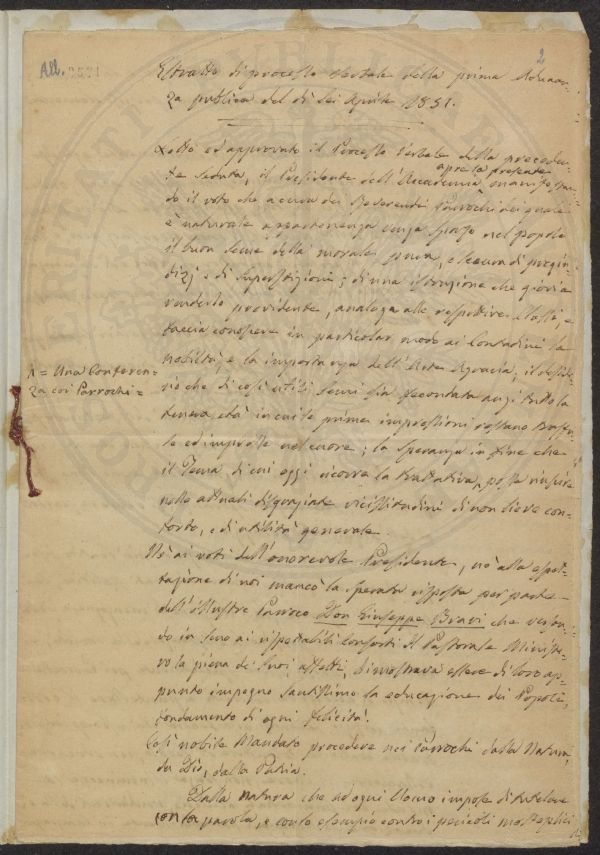 All. 2531
2
Estratto di processo verbale della prima Adunan-
za publica del dì sei Aprile 1851.
Letto ed approvato il Processo Verbale della preceden-
te seduta, il Presidente dell'Accademia apre la presente manifestan-
do il voto che a cura dei Reverendi Parrochi dei quali
è naturale appartenenza venga sparso nel popolo
il buon seme della morale pura, e scevra di pregiu-
dizj e di superstizioni; di una istruzione che giovi a
renderlo previdente, analoga alle rispettive classi, e
faccia conoscere in particolar modo ai Contadini la
nobiltà, e la importanza dell'Arte Agraria, il deside-
rio che di così utili semi sia fecondata anzi tutto la
tenera età in cui le prime impressioni restano
ed impresse nel cuore; la speranza in fine che
il Tema di cui oggi ricorre la trattativa, possa riuscire
nelle attuali disgraziate vicissitudini di non lieve con-
forto, e di utilità generale.
= Una Conferen-
za coi Parrochi =
Nè ai voti dell'onorevole Presidente, nè alla aspet-
tazione di noi mancò la sperata risposta per parte
dell'illustre Parroco Don Giuseppe Bravi che versan-
do in seno ai rispettabili consorti il Pastorale Ministe-
ro la piena de' suoi affetti, dimostrava essere di loro ap-
punto impegno santissimo la educazione dei Popoli,
fondamento di ogni felicità.
Così nobile Mandato procedere nei Parrochi dalla Natura,
da Dio, dalla Patria.
Dalla natura che ad ogni Uomo impose di tutelare
con la parola, e con lo esempio contro i pericoli molteplici